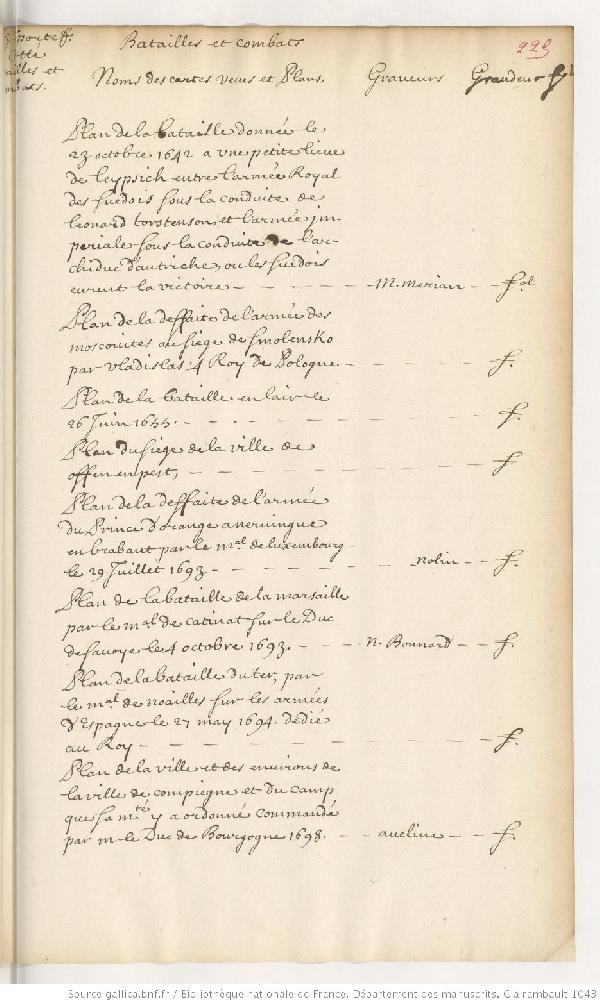 Batailles et combats
229
Noms des cartes veues et Plans. Graveurs Grandeur
Plan de la bataille donnée le
23 octobre 1642 a une petite lieue
de leypsich entre l'armée Royal
des suedois sous la conduite de
leonard torstenson et l'armée im-
periale sous la conduite de l'ar-
chiduc d'autriche, ou les suedois
eurent la victoire - - - - - M. merian - - f.al
Plan de la deffaite de l'armée des
moscovites au siege de smolensko
par vladislas 4 Roy de Pologne. - - - - f.
Plan de la bataille en l'air le
26 Juin 1655. - - - - - - - f.
Plan du siege de la ville de
offen en pest, - - - - - - - f
Plan de la deffaite de l'armée
du Prince d'orange a nervingue
en brabant par le m.al de luxembourg
le 29 Juillet 1693 - - - - - nolin - - f.
Plan de la bataille de la marsaille
par le m.al de catinat sur le Duc
de savoye le 4 octobre 1693. - - - n. Bonnard - - f.
Plan de la bataille du ter, par
le m.al de noailles sur les armées
d'Espagne le 27 may 1694. dedié
au Roy - - - - - - - f.
Plan de la ville et des environs de
la ville de compiegne et du camp
que sa m.té y a ordonné commandé
par m. le Duc de Bourgogne 1698. - - aveline - - f.
Source gallica.bnf.fr / Bibliothèque nationale de France. Département des manuscrits. Clairambault 1043